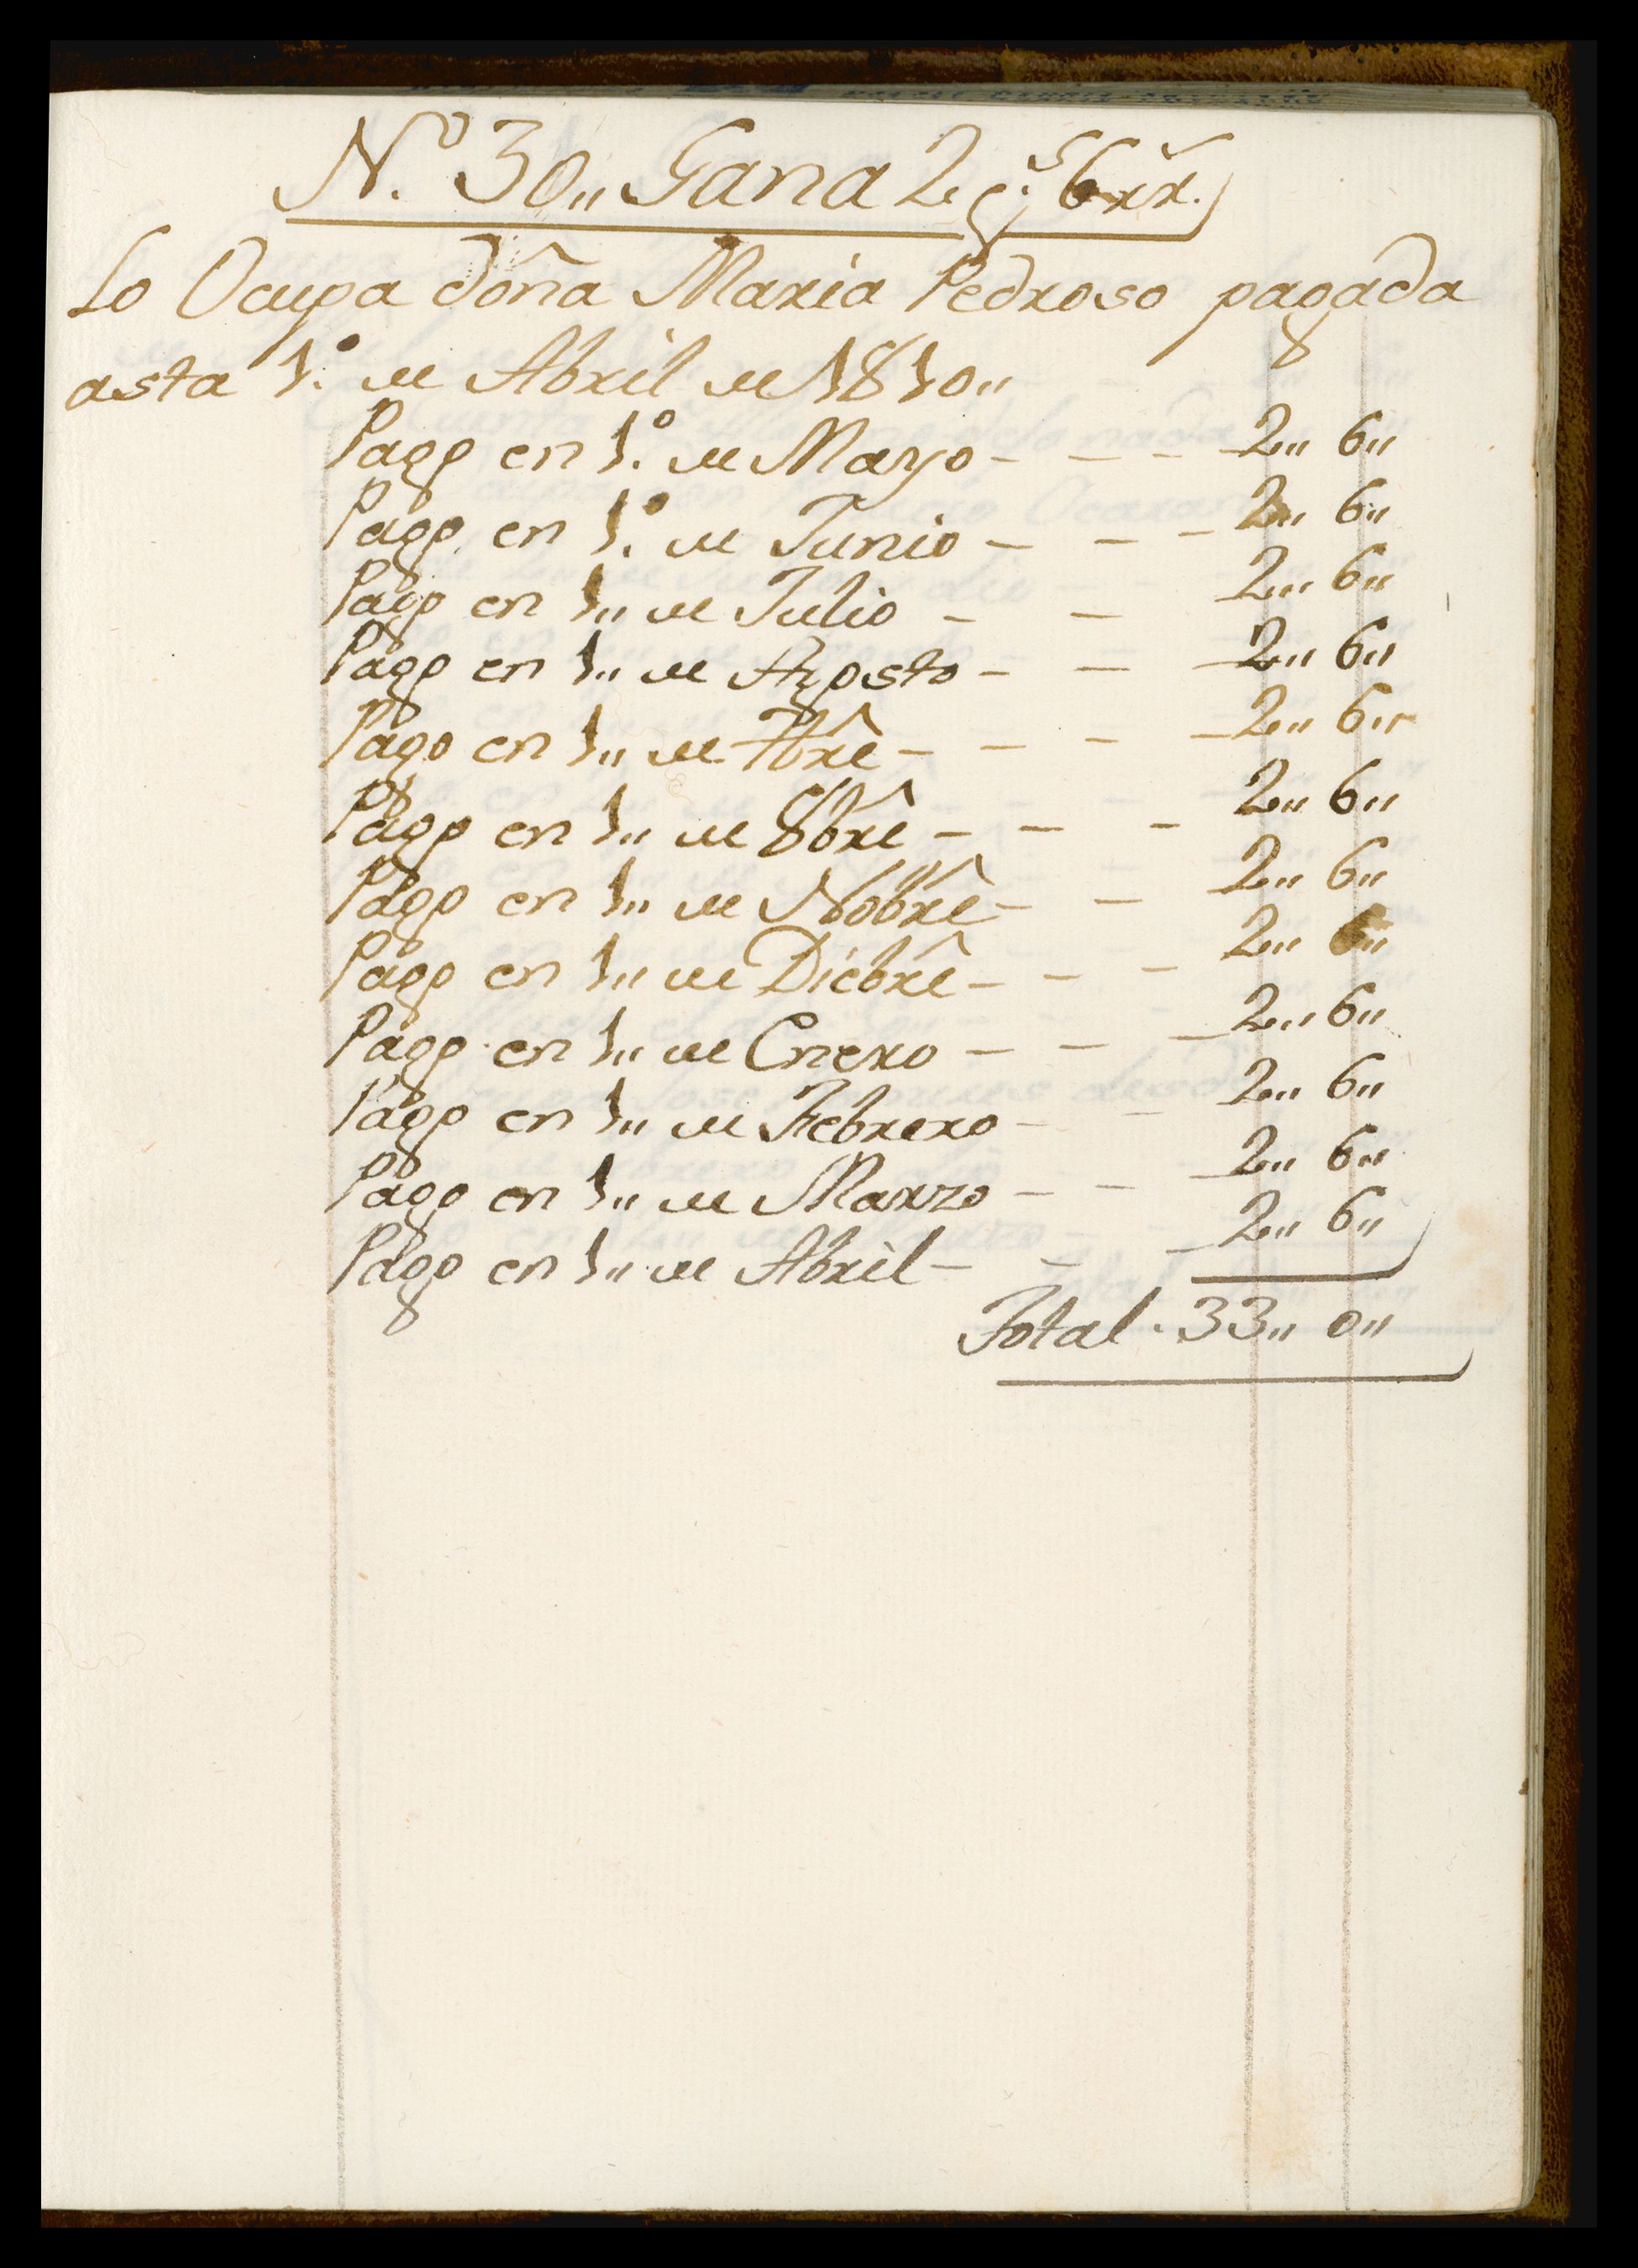 N.º 30,, Gana 2 p.s 6 rr.
Lo Ocupa doña Maria Pedroso pagada
asta 1.º de Abril de 1810,,
Pago en 1.º de Mayo - - - - 2,, 6,,
Pago en 1.º de Junio - - - 2,, 6,,
Pago en 1,, de Julio - - - 2,, 6,,
Pago en 1,, de Agosto - - - 2,, 6,,
Pago en 1,, de 7bre - - - - 2,, 6,,
Pago en 1,, de 8bre - - - 2,, 6,,
Pago en 1,, de Nobre - - - 2,, 6,,
Pago en 1,, de Diebre - - - 2,, 6,,
Pago en 1,, de Enero - - - 2,, 6,,
Pago en 1,, de Febrero - - 2,, 6,,
Pago en 1,, de Marzo - - - 2,, 6,,
Pago en 1,, de Abril - - - 2,, 6,,
Total . 33,, 0,,